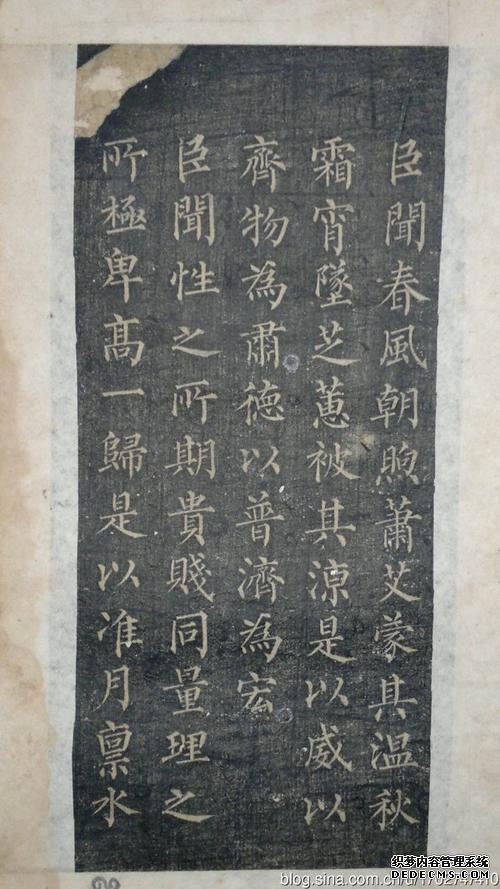 臣聞春風朝煦蕭艾蒙其温秋
霜宵墜芝蕙被其涼是以威以
齊物為肅德以普濟為宏
臣聞性之所期貴賤同量理之
所極卑髙一歸是以准月禀水
织梦内容管理系统
DEDECMS.COM